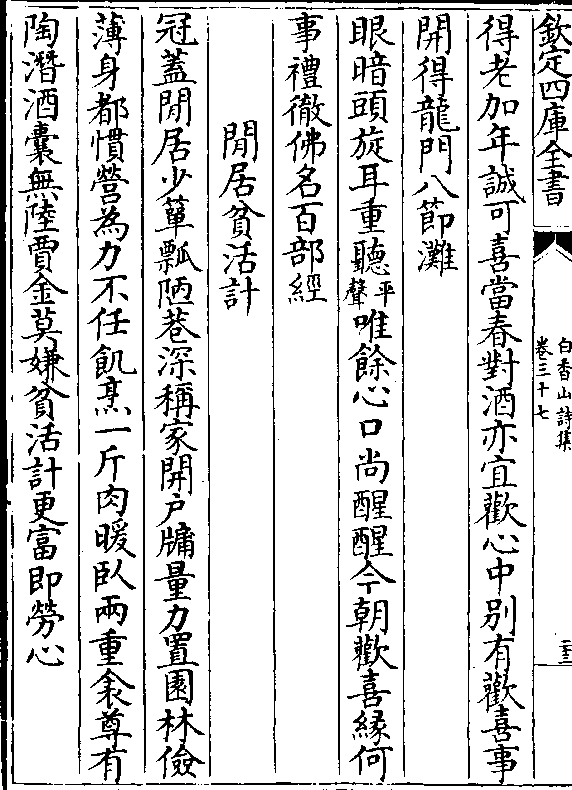 欽定四庫全書
白香山詩集
卷三十七
得老加年誠可喜當春對酒亦宜歡心中别有歡喜事
開得龍門八節灘
眼暗頭旋耳重聽平聲唯餘心口尚醒醒今朝歡喜緣何
事禮徹佛名百部經
閒居貧活計
冠蓋閒居少簞瓢陋巷深稱家開户牖量力置園林儉
薄身都慣營為力不任飢烹一斤肉暖臥兩重衾尊有
陶潛酒囊無陸賈金莫嫌貧活計更富即勞心